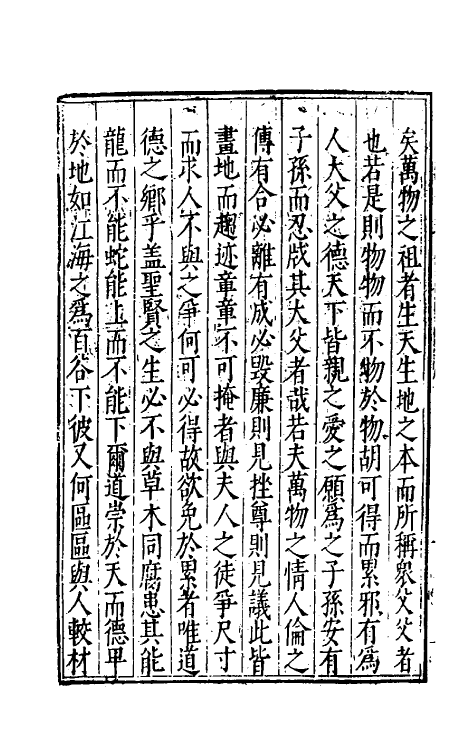 矣萬物之祖者生天生地之本而所稱衆父父者
也若是則物物而不物於物胡可得而累邪有為
人大父之德天下皆親之愛之願為之子孫安有
子孫而忍戕其大父者哉若夫萬物之情人倫之
傳有合必離有成必毀廉則見挫尊則見議此皆
畫地而趨迹童童不可掩者與夫人之徒爭尺寸
而求人不與之爭何可必得故欲免於累者唯道
德之鄉乎盖聖賢之生必不與草木同腐患其能
龍而不能蛇能上而不能下爾道崇於天而德畀
於地如江海之爲百谷下彼又何區區與人較材